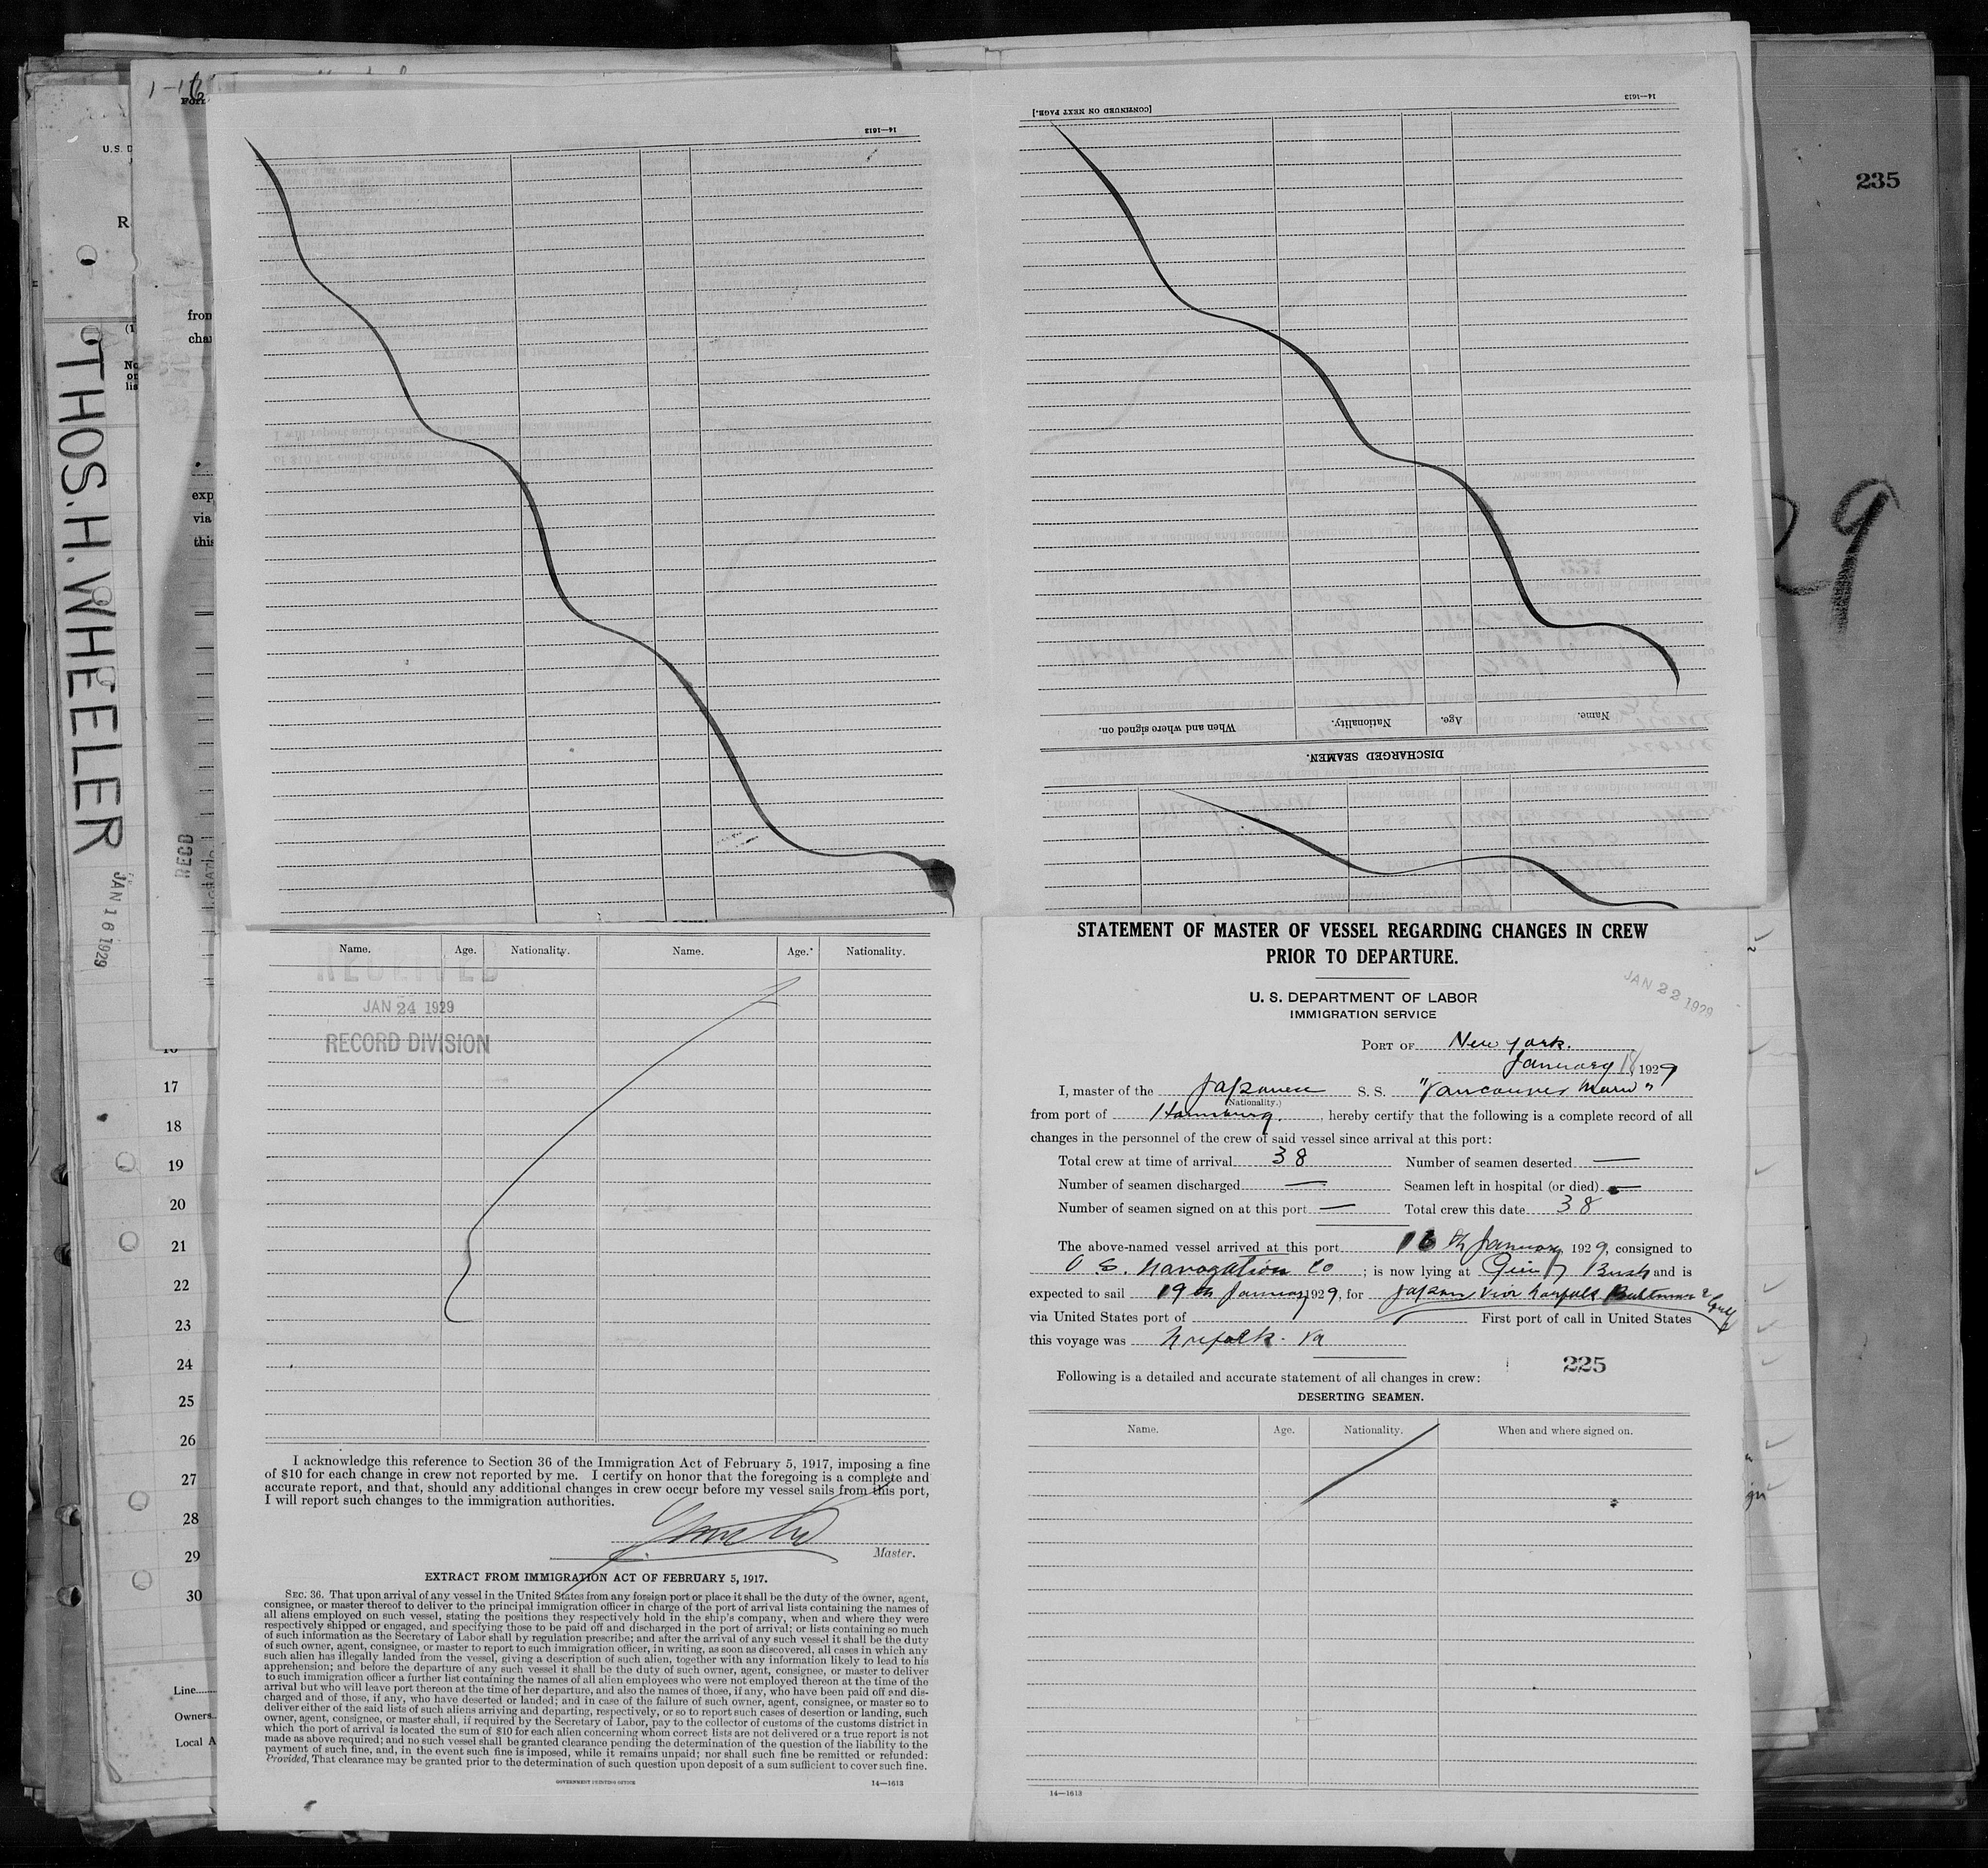 1-16
U.S. D
R
fron
cha
(1
No
or
lis
exp
via
this
THOS. H. WHEELER
JAN 16 1929
RECD
14—1613
14—1613
[CONTINUED ON NEXT PAGE.]
Name. Age. Nationality. When and where signed on.
DISCHARGED SEAMEN.
235
29
17
18
19
20
21
22
23
24
25
26
27
28
29
30
Line
Owners
Local A
Name. Age. Nationality. Name. Age. Nationality.
RECEIVED
JAN 24 1929
RECORD DIVISION
I acknowledge this reference to Section 36 of the Immigration Act of February 5, 1917, imposing a fine
of $10 for each change in crew not reported by me. I certify on honor that the foregoing is a complete and
accurate report, and that, should any additional changes in crew occur before my vessel sails from this port,
I will report such changes to the immigration authorities.
Master.
EXTRACT FROM IMMIGRATION ACT OF FEBRUARY 5, 1917.
SEC. 36. That upon arrival of any vessel in the United States from any foreign port or place it shall be the duty of the owner, agent,
consignee, or master thereof to deliver to the principal immigration officer in charge of the port of arrival lists containing the names of
all aliens employed on such vessel, stating the positions they respectively hold in the ship's company, when and where they were
respectively shipped or engaged, and specifying those to be paid off and discharged in the port of arrival; or lists containing so much
of such information as the Secretary of Labor shall by regulation prescribe; and after the arrival of any such vessel it shall be the duty
of such owner, agent, consignee, or master to report to such immigration officer, in writing, as soon as discovered, all cases in which any
such alien has illegally landed from the vessel, giving a description of such alien, together with any information likely to lead to his
apprehension; and before the departure of any such vessel it shall be the duty of such owner, agent, consignee, or master to deliver
to such immigration officer a further list containing the names of all alien employees who were not employed thereon at the time of the
arrival but who will leave port thereon at the time of her departure, and also the names of those, if any, who have been paid off and dis-
charged and of those, if any, who have deserted or landed; and in case of the failure of such owner, agent, consignee, or master so to
deliver either of the said lists of such aliens arriving and departing, respectively, or so to report such cases of desertion or landing, such
owner, agent, consignee, or master shall, if required by the Secretary of Labor, pay to the collector of customs of the customs district in
which the port of arrival is located the sum of $10 for each alien concerning whom correct lists are not delivered or a true report is not
made as above required; and no such vessel shall be granted clearance pending the determination of the question of the liability to the
payment of such fine, and, in the event such fine is imposed, while it remains unpaid; nor shall such fine be remitted or refunded:
Provided, That clearance may be granted prior to the determination of such question upon deposit of a sum sufficient to cover such fine.
GOVERNMENT PRINTING OFFICE 14—1613
STATEMENT OF MASTER OF VESSEL REGARDING CHANGES IN CREW
PRIOR TO DEPARTURE.
JAN 22 1929
U. S. DEPARTMENT OF LABOR
IMMIGRATION SERVICE
PORT OF New York.
January 18 1929
I, master of the Japanese S. S. "Vancouver Maru"
(Nationality.)
from port of Hamburg., hereby certify that the following is a complete record of all
changes in the personnel of the crew of said vessel since arrival at this port:
Total crew at time of arrival 38 Number of seamen deserted —
Number of seamen discharged — Seamen left in hospital (or died) —
Number of seamen signed on at this port — Total crew this date 38
The above-named vessel arrived at this port 16th January 1929, consigned to
U. S. Navagation Co; is now lying at Bush and is
expected to sail 19th January 1929, for Japan via & Gulf
via United States port of First port of call in United States
this voyage was Norfolk. Va
225
Following is a detailed and accurate statement of all changes in crew:
DESERTING SEAMEN.
Name. Age. Nationality. When and where signed on.
14—1613